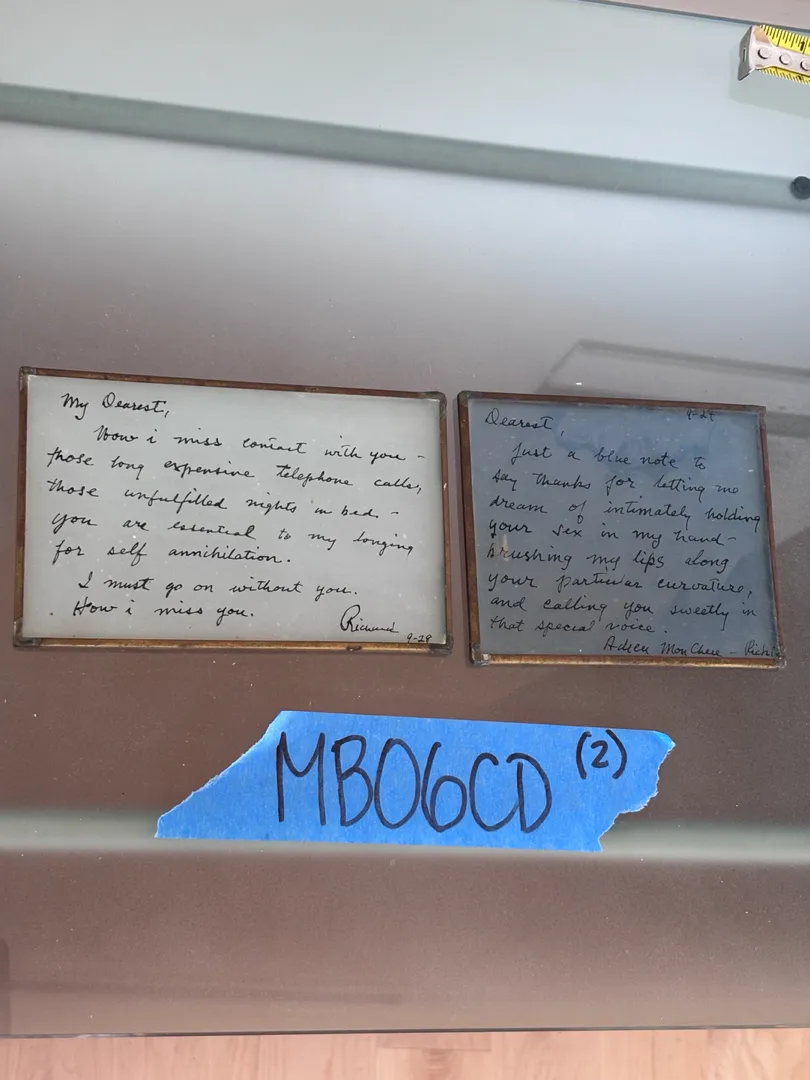 My Dearest,
How i miss contact with you -
those long expensive telephone calls,
those unfulfilled nights in bed. -
you are essential to my longing
for self annihilation.
I must go on without you.
How i miss you.
Richard
9-28
9-24
Dearest,
Just a blue note to
say thanks for letting me
dream of intimately holding
your sex in my hand-
brushing my lips along
your particular curvature,
and calling you sweetly in
that special voice.
Adieu Mon Chere -
MB06CD (2)